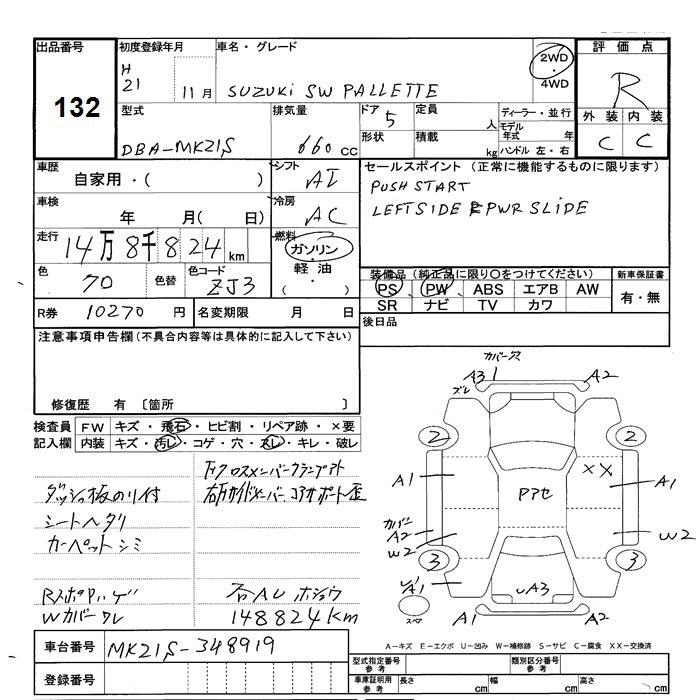 出品番号
132
初度登録年月
H
21 11月
車名・グレード
SUZUKi SW PALLETTE
2WD
・
4WD
評価点
R
外装 内装
C C
型式
DBA-MK21S
排気量
660 cc
ドア 5
形状
定員 人
積載 kg
ディーラー・並行
モデル年式 年
ハンドル 左・右
車歴
自家用・( )
シフト
AT
セールスポイント (正常に機能するものに限ります)
PUSH START
LEFT SIDE PWR SLIDE
車検
年 月( 日)
冷房
AC
走行
14万8千824km
燃料
ガソリン
軽油
・( )
色
70
色替
色コード
ZJ3
装備品 (純正品に限り〇をつけてください)
PS PW ABS エアB AW
SR ナビ TV カワ
新車保証書
有・無
R券 10270 円
名変期限 月 日
後日品
注意事項申告欄 (不具合内容等は具体的に記入して下さい)
修復歴 有 〔箇所 〕
検査員記入欄
FW キズ・飛石・ヒビ割・リペア跡・×要
内装 キズ・汚レ・コゲ・穴・スレ・キレ・破レ
Fクロスメンバークランプアト
右Fサイドメンバー コアサポート歪
シートヘタリ
カーペットシミ
Wカバーワレ
148824km
カバー穴
A3 1 A2
ズレ
2 2
A1 A1
××
Pアセ
カバー
A2
W2 W2
3 3
A1
A3
スペア
A1 A2
車台番号 MK21S-348919
登録番号
A-キズ E-エクボ U-凹み W-補修跡 S-サビ C-腐食 XX-交換済
型式指定番号
参考
類別区分番号
参考
車庫証明用
参考
長さ cm
幅 cm
高さ cm